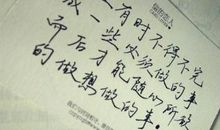 有时不得不完
成一些必须做的事
而后才能随心所欲
的做想做的事.